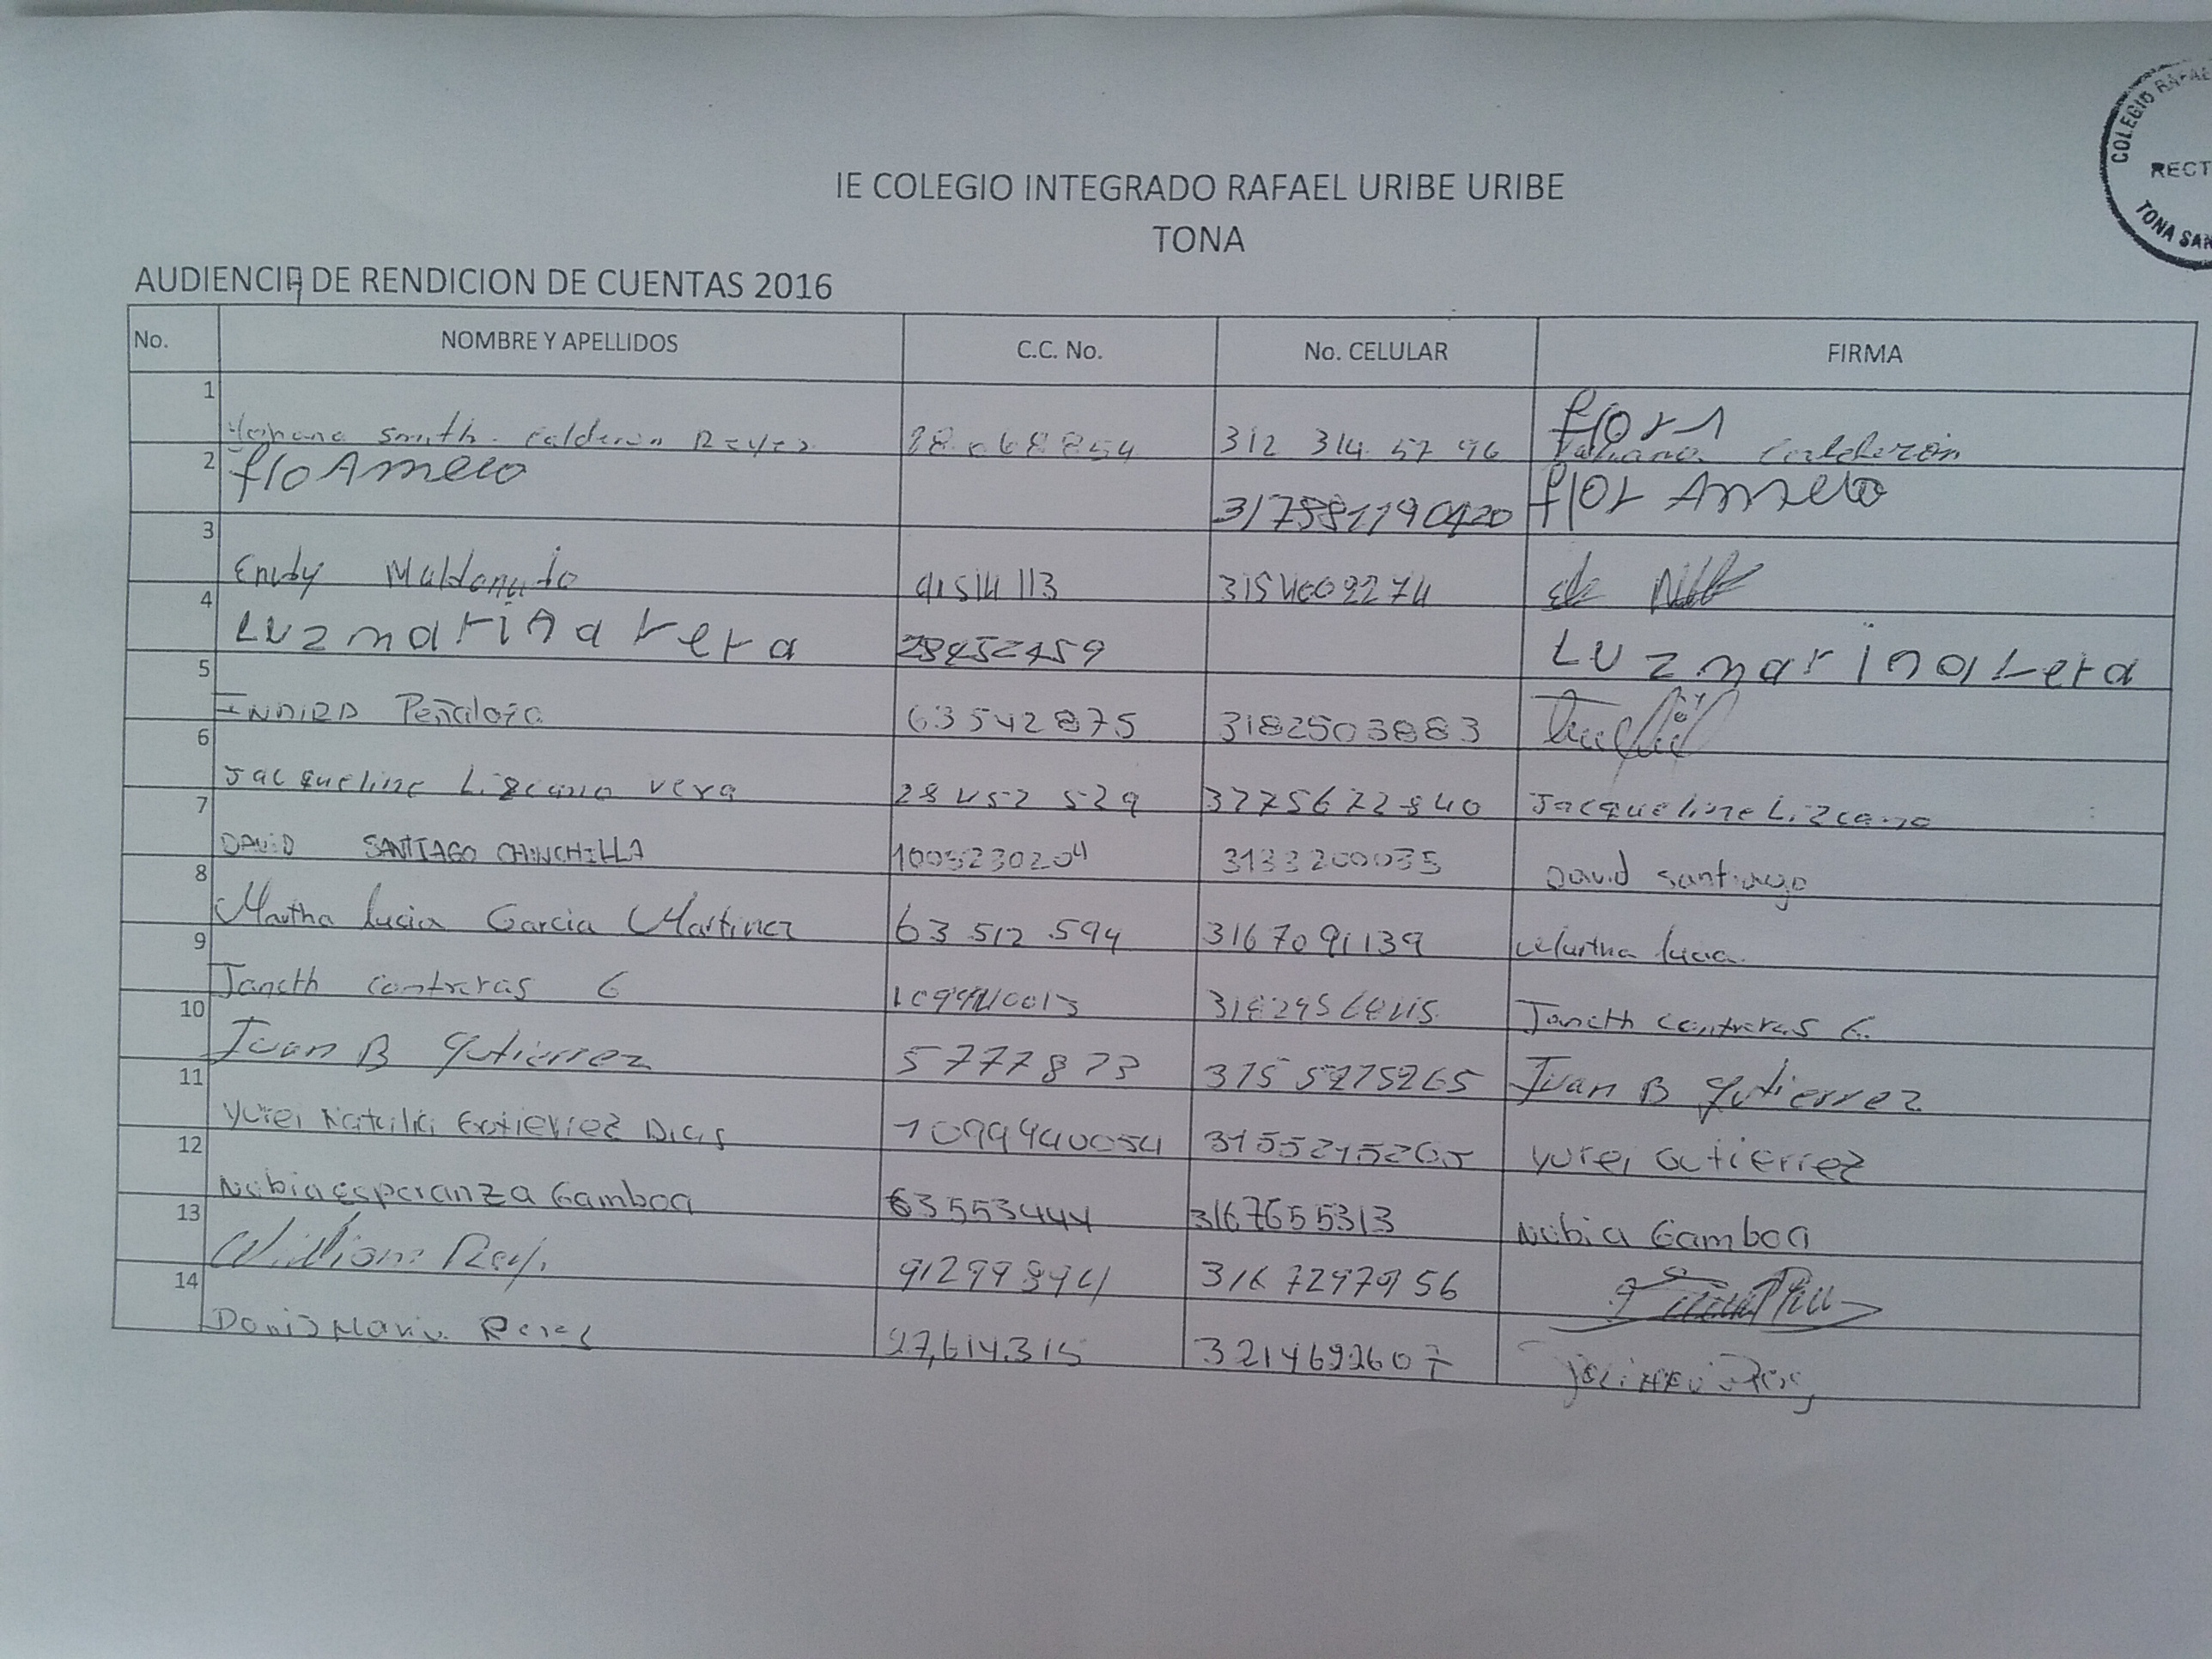 COLEGIO RAFAEL
RECT
TONA SAN
IE COLEGIO INTEGRADO RAFAEL URIBE URIBE
TONA
AUDIENCIA DE RENDICION DE CUENTAS 2016
No. NOMBRE Y APELLIDOS C.C. No. No. CELULAR FIRMA
1 smith Calderon Reyes 312 314 57 96 flor 1 Calderón
2 flo 317 flor
3 Maldonado
4 Luz marina Vera Luz marina Vera
5 INDIRA Peñaloza 63542875 3182503883
6 Jacqueline Lizcano vera 28452529 Jacqueline Lizcano
7 DAVID SANTIAGO CHINCHILLA 1005230204 3133200035 David santiago
8 Martha Lucia Garcia Martinez 63 512 594 3167091139 Martha lucia
9 Janeth contreras G Janeth contreras G.
10 Juan B Gutierrez 5777873 3155215265 Juan B Gutierrez
11 Yurei Natalia Gutierrez Dias 1099940054 3155215265 Yurei Gutierrez
12 Nubia Esperanza Gamboa 63553444 3167655313 Nubia Gamboa
13 William Rey.
14 Maria 27,614.315 3214692607